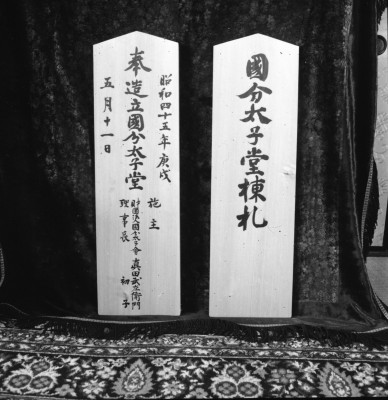 國分太子堂棟札
昭和四十五年庚戌
施主
奉造立國分太子堂
眞田武左衛門
理事長 初子
五月十一日